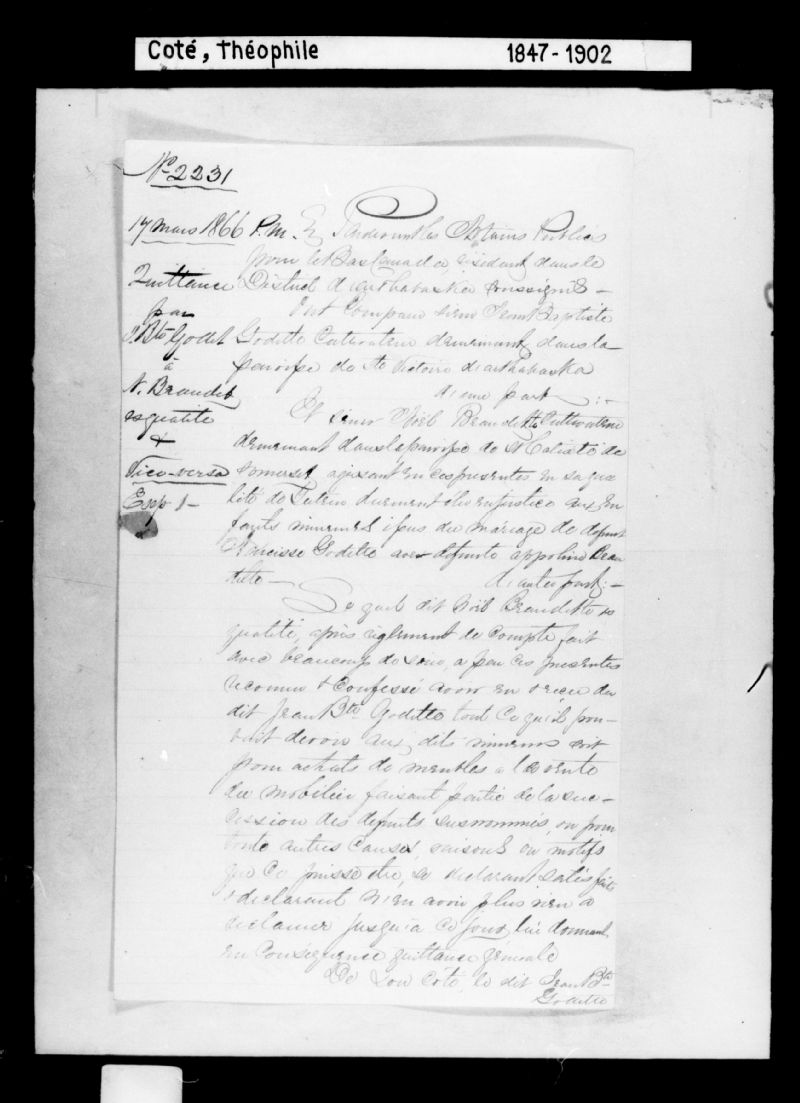 Coté, Théophile 1847-1902
No 2231
17 mars 1866 P.M.
Quittance
par
J. Bte Godet
à
N. Beaudet
esqualité
&
Vice-versa
Exp 1-
Pardevant les Notaires Publics
pour le Bas Canada résidant dans le
District d'arthabaska soussignés -
Est comparu sieur Jean Baptiste
Godette Cultivateur demeurant dans la
paroisse de Ste Victoire d'arthabaska
d'une part :-
Et sieur Noël Beaudette Cultivateur
demeurant dans la paroisse de St Calixte de
Somerset agissant en ces presentes en sa qua
lité de Tuteur duement élu en justice aux En
fants mineurs issus du mariage de defunt
Narcisse Godette avec defunte appoline Beau
dette - d'autre part :-
Lequel dit Noël Beaudette es
qualité, après règlement de compte fait
avec beaucoup de soin, a par ces presentes
reconnu & confessé avoir eu & reçu du
dit Jean Bte Godette tout ce qu'il pou-
vait devoir aux dits mineurs soit
pour achats de meubles a la vente
du mobilier faisant partie de la suc-
cession des defunts susnommés, ou pour
toute autres causes, raisons ou motifs
que ce puisse etre, se declarant satisfait
& declarant n'en avoir plus rien a
reclamer jusqu'à ce jour, lui donnant
en conséquence quittance générale
De son coté, le dit Jean Bte
Godette